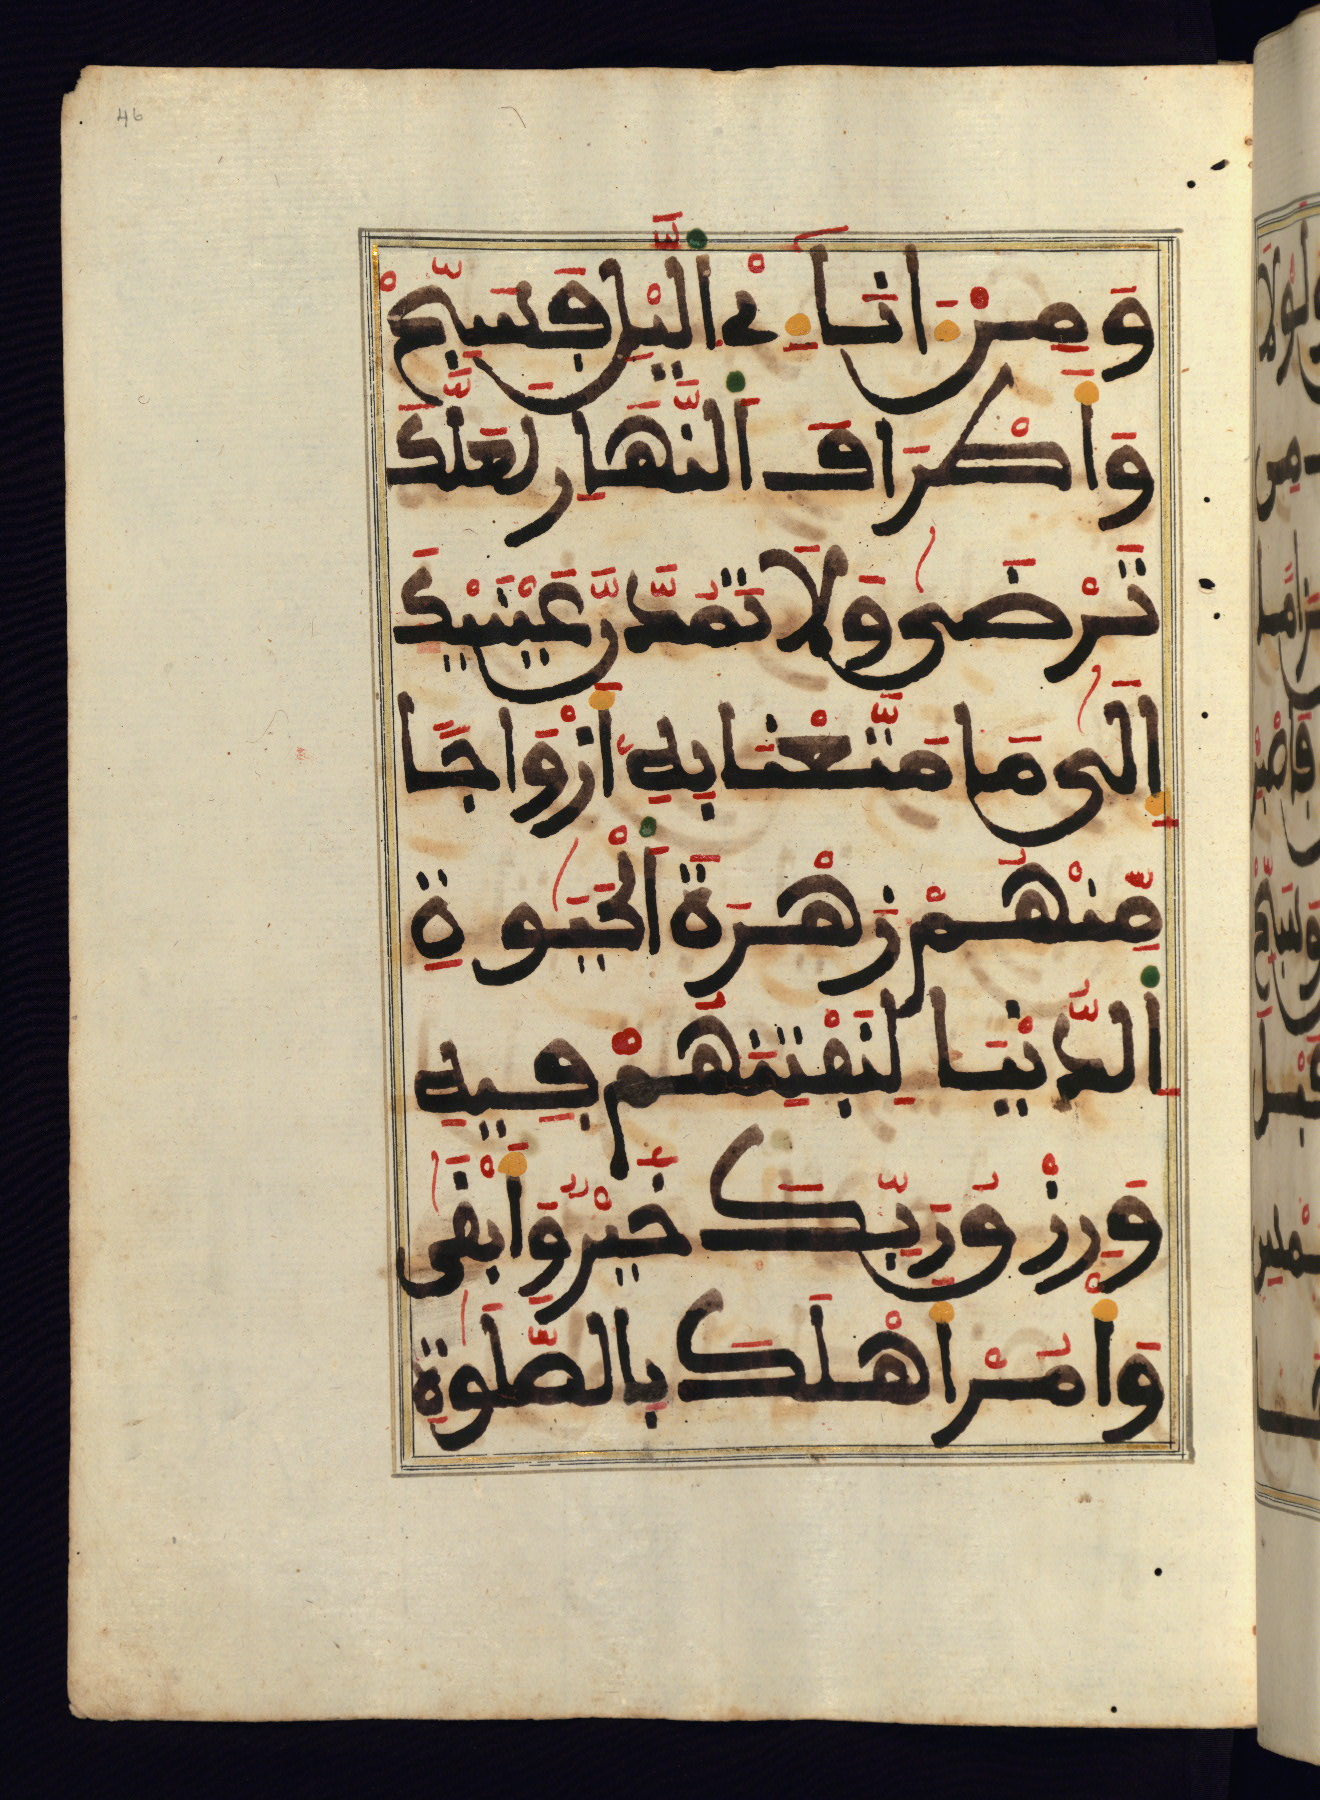 46
وَمِنَ اٰنَآءِےْ اِ۬ليْلِ فَسَبِّحْ
وَأَطْرَافَ اَ۬لنَّهَارِ لَعَلَّكَ
تَرْضَىٰ وَلَا تَمُدَّنَّ عَيْنَيْكَ
إِلَىٰ مَا مَتَّعْنَا بِهِۦٓ أَزْوَاجًا
مِّنْهُمْ زَهْرَةَ اَ۬لْحَيَوٰةِ
اِ۬لدُّنْيَا لِنَفْتِنَهُمْ فِيهِ
وَرِزْقُ رَبِّكَ خَيْرٌ وَأَبْقَىٰ
وَأْمُرْ أَهْلَكَ بِالصَّلَوٰةِ